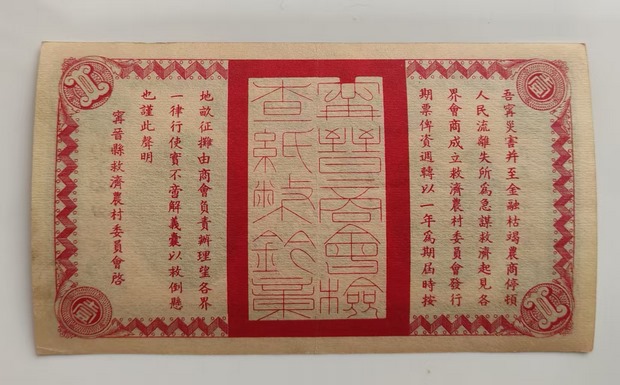 貳
吾寧災害并至金融枯竭農商停頓
人民流離失所為急謀救濟起見各
界會商成立救濟農村委員會發行
期票俾資週轉以一年為期屆時按
寧晉商會檢
查紙幣鈐章
地畝征攤由商會負責辦理望各界
一律行使實不啻解義囊以救倒懸
也謹此聲明
寧晉縣救濟農村委員會啓
貳